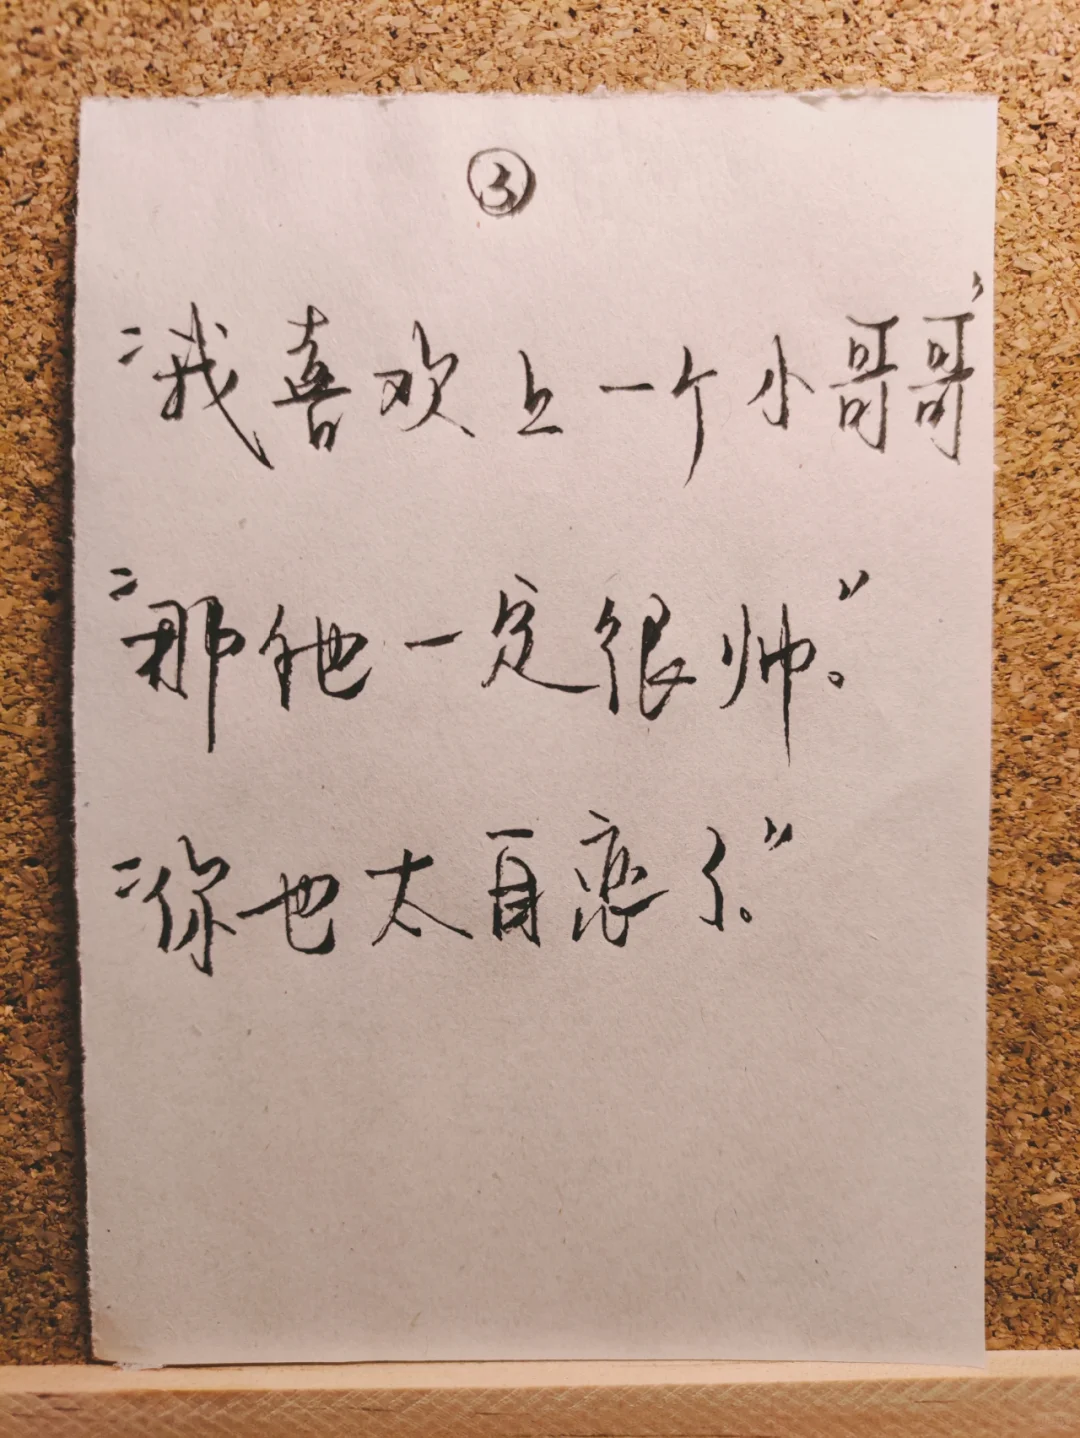 ③
“我喜欢上一个小哥哥”
“那他一定很帅。”
“你也太自恋了。”